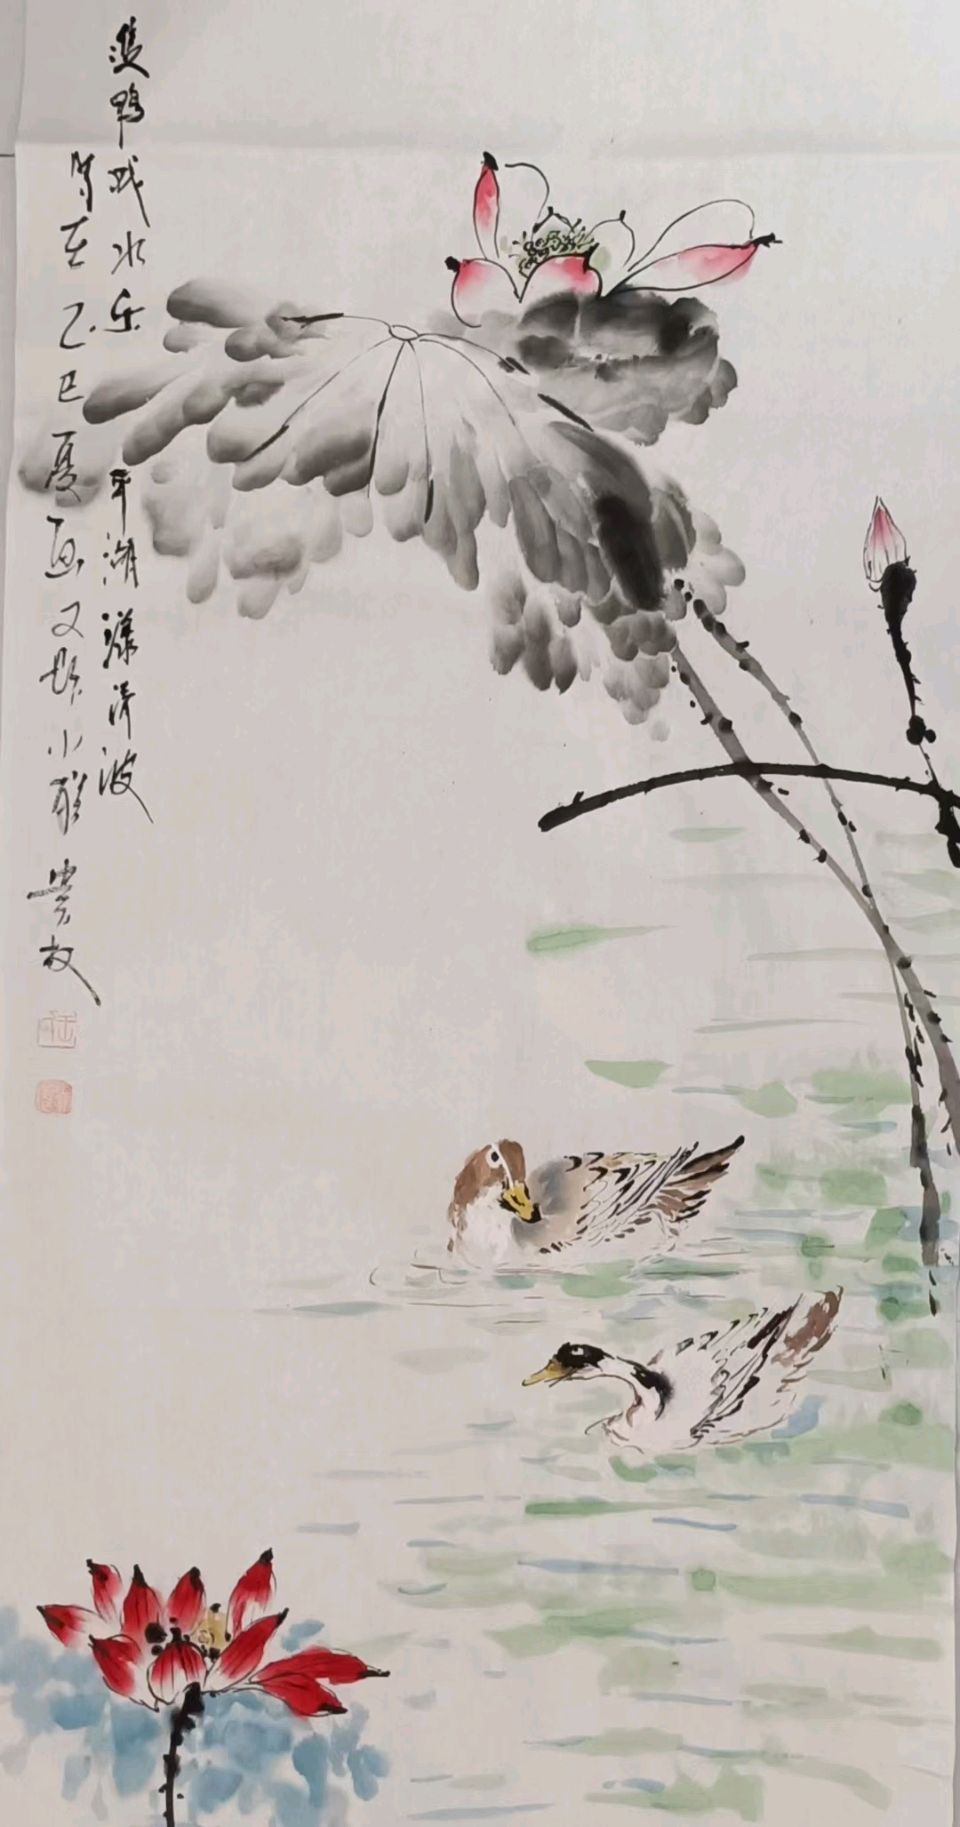 双鸭戏水乐 平湖漾清波
时在乙巳夏画又题小雅 贵叔